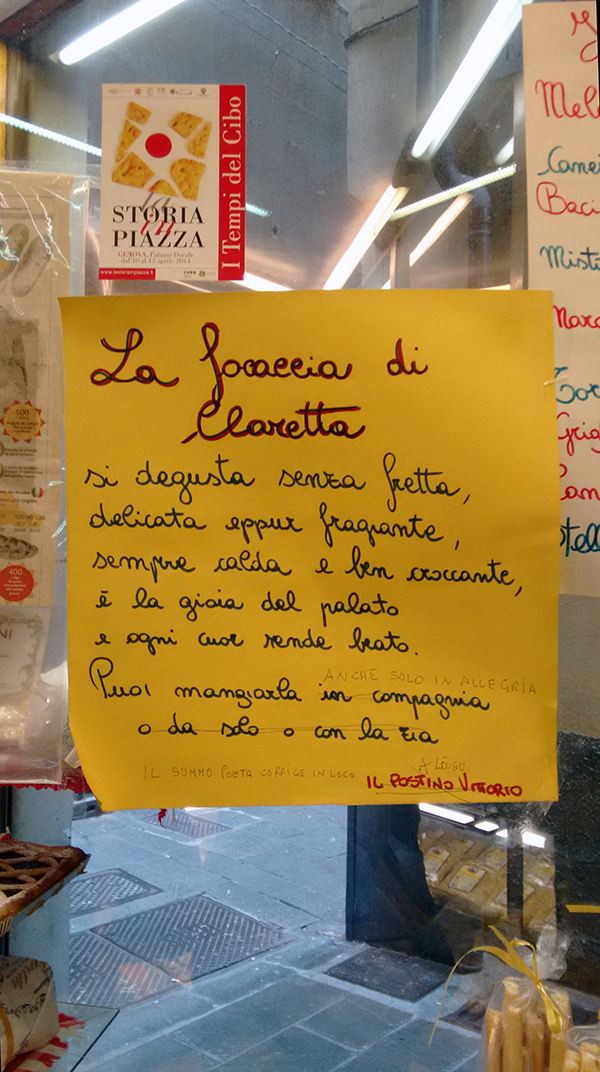 la
STORIA
in
PIAZZA
GENOVA, Palazzo Ducale
dal 10 al 13 aprile 2014
www.lastoriainpiazza.it
I Tempi del Cibo
La focaccia di
Claretta
si degusta senza fretta,
delicata eppur fragrante,
sempre calda e ben croccante,
è la gioia del palato
e ogni cuor rende beato.
ANCHE SOLO IN ALLEGRIA
Puoi mangiarla in compagnia
o da solo o con la zia
IL SOMMO POETA CORRIGE IN LOCO
IL POSTINO VITTORIO
500
400
Mel
Baci
Mist